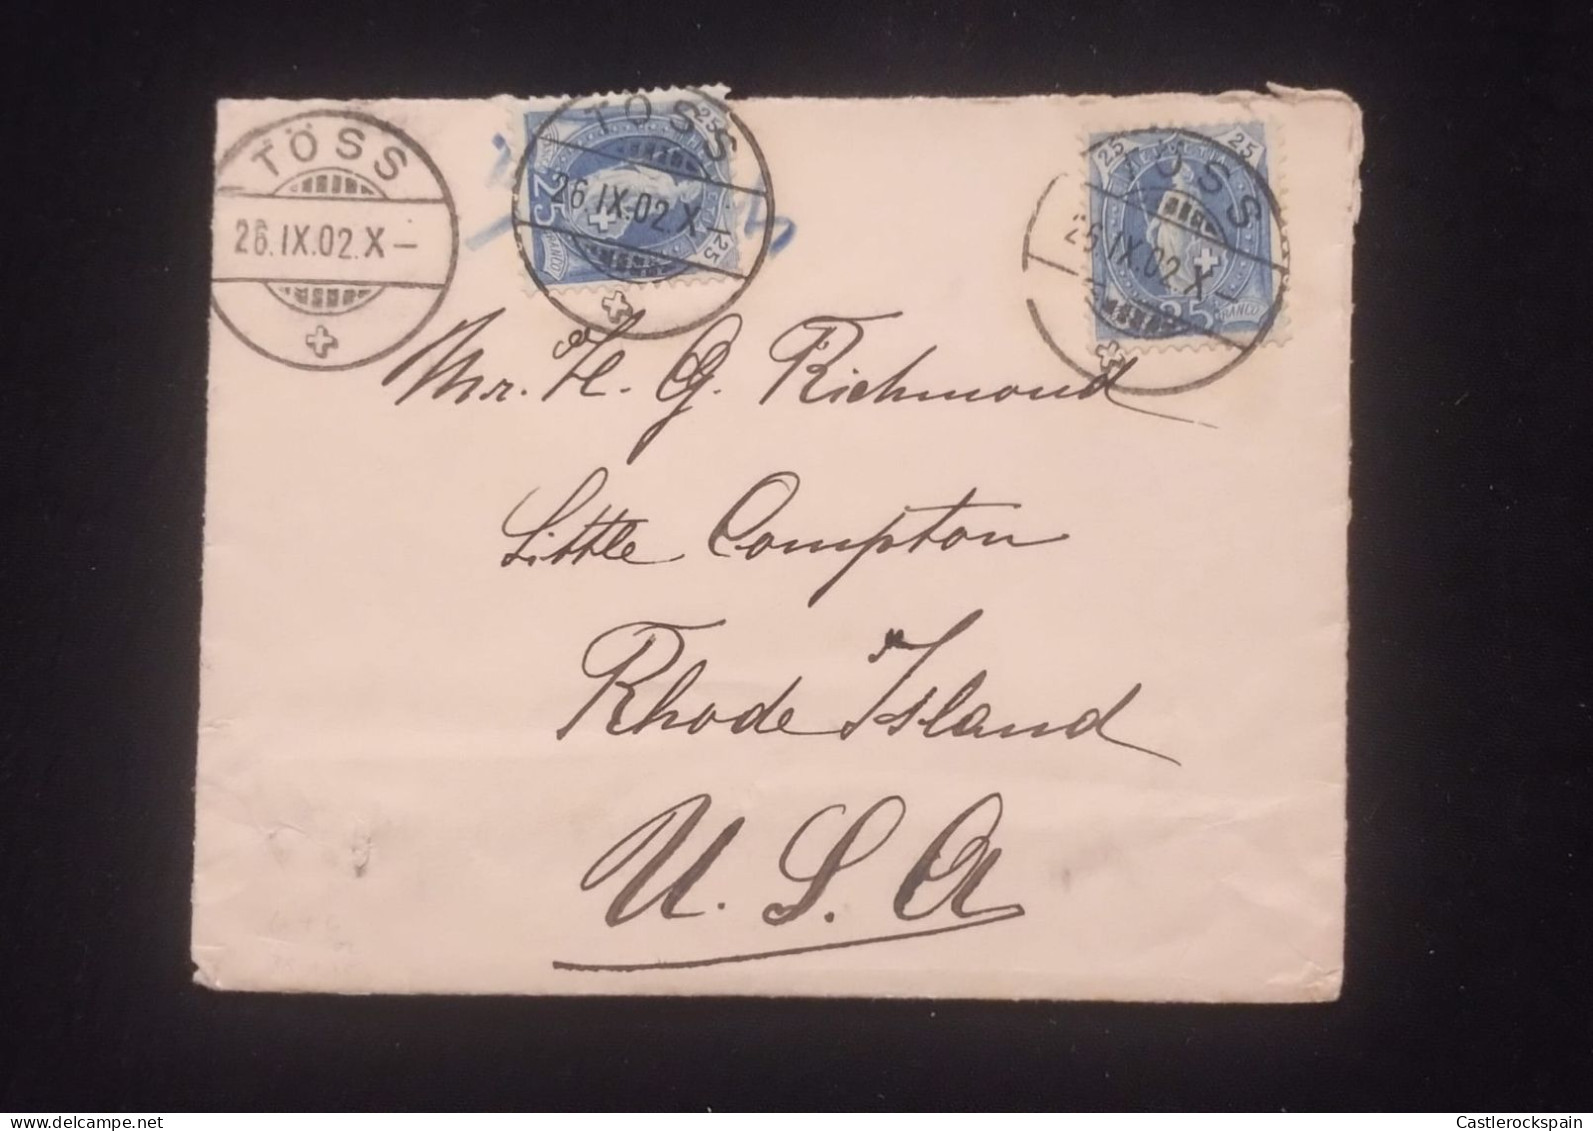 TÖSS
26.IX.02.X–
TÖSS
26.IX.02.X–
25
25
25
FRANCO
TÖSS
26.IX.02.X–
25
25
HELVETIA
25
FRANCO
Mr. H. G. Richmond
Little Compton
Rhode Island
U. S. A
Castlerockspain
www.delcampe.net